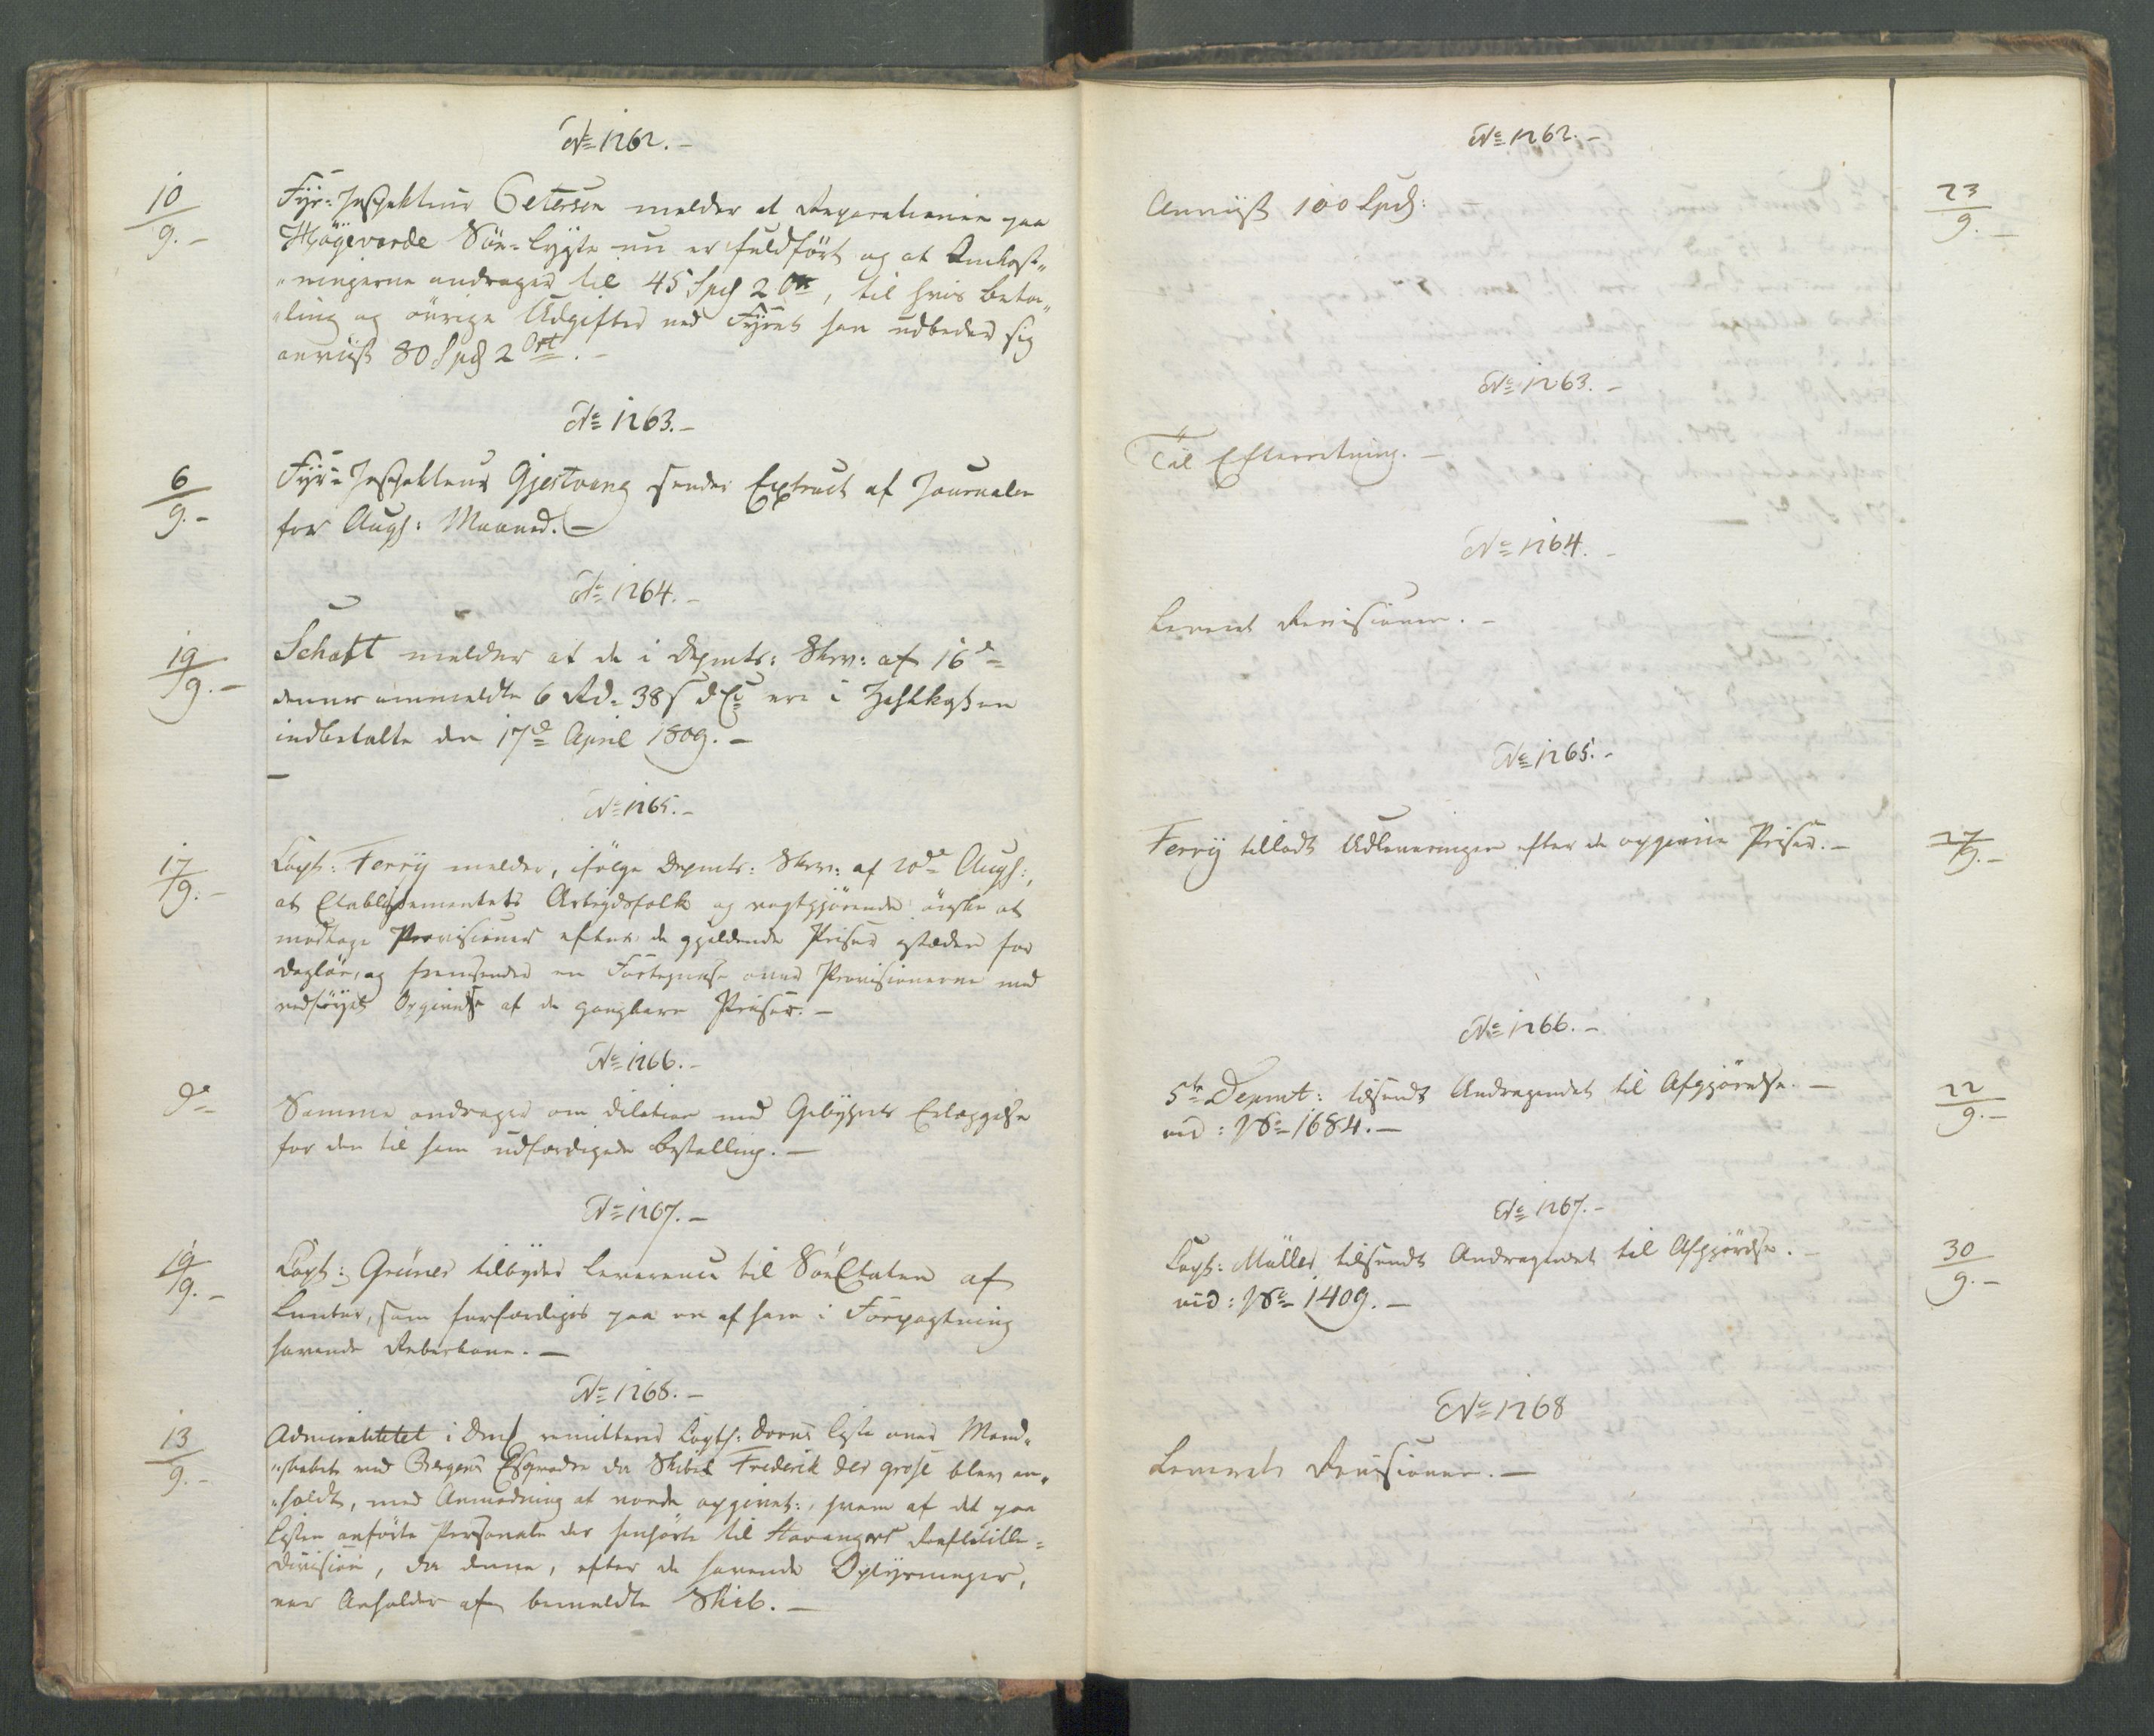 No 1262.-
10/9.-
Fyr-Inspekteur Petersen melder at Reparationen paa
Höyevarde Söe-Lygte nu er fuldfört og at Omkost„
„ningerne andrager til 45 Spd 2 Ort, til hvis beta„
„ling og övrige Udgifter ved Fyret han udbeder sig
anviist 80 Spd 2 Ort.-
No 1263.-
6/9.-
Fyr-Inspekteur Gjestvang sender Extract af Journalen
for Augs: Maaned.-
No 1264.-
19/9.-
Schatt melder at de i Depmts: Skrv: af 16de
dennes ommeldte 6 Rd. 38 s d C ere i Zahlkassen
indbetalte den 17de April 1809.-
No 1265.-
17/9.-
Capt: Ferry melder, ifölge Depmts: Skrv: af 20de Augs:,
at Etablissementets Arbeydsfolk og vagtgjörende önske at
modtage Provisioner efter de gjeldende Priser istæden for
Daglön, og fremsender en Fortegnelse over Provisionerne med
vedföyet Opgivelse af de gangbare Priser.-
No 1266.-
Do
Samme andrager om dilation med Gebyhrets Erlæggelse
for den til ham udfærdigede Bestalling.-
No 1267.-
19/9.-
Capt: Grüner tilbyder Leverence til SöeEtaten af
Lunter, som forfærdiges paa en af ham i Forpagtning
havende Reberbane.-
No 1268.-
13/9.-
Admiralitetet i Dmk remitterer Capts: Dovns Liste over Mand„
„skabet ved Bergens Esqvadre da Skibet Frederik der grose blev an„
„holdt, med Anmodning at vorde opgivet: hvem af det paa
Listen anförte Personale der henhörte til Stavangers Roeflotille-
Division, da denne, efter de havende Oplysninger,
var Anholder af bemeldte Skib.-
No 1262.-
Anviist 100 Spd:
23/9.-
No 1263.-
Til Efterretning.-
No 1264.-
Leveret Revisionen.-
No 1265.-
Ferry tilladt Udleveringen efter de opgivne Priser.-
27/9.-
No 1266.-
5te Depmt: tilsendt Andragendet til Afgjörelse.-
vid: No 1684.-
22/9.-
No 1267.-
Capt: Müller tilsendt Andragendet til Afgjörelse.-
vid: No 1409.-
30/9.-
No 1268
Leveret Revisionen.-